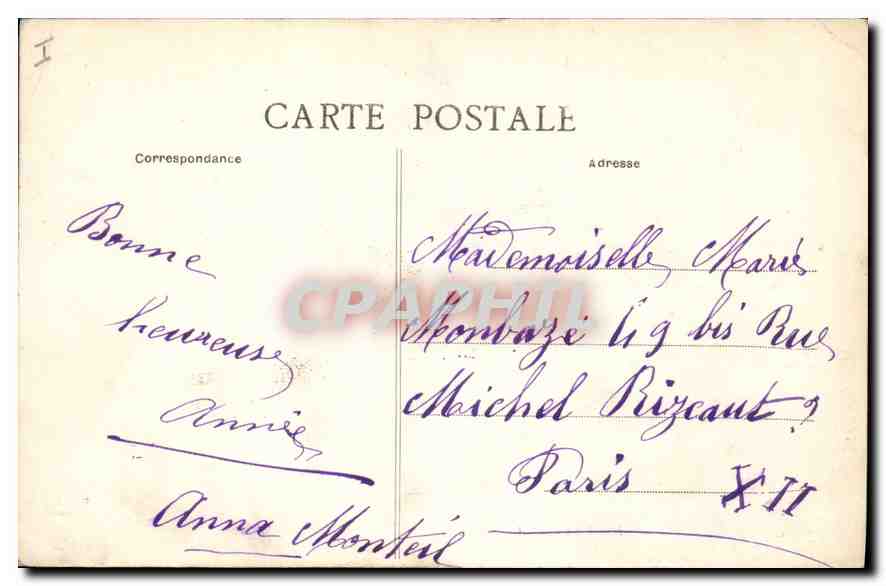 I
CARTE POSTALE
Correspondance
Adresse
Bonne
heureuse
Année
Anna Monteil
Mademoiselle Marie
Monbazé 49 bis Rue
Michel Bizeaut
Paris XII
CPAPHIL